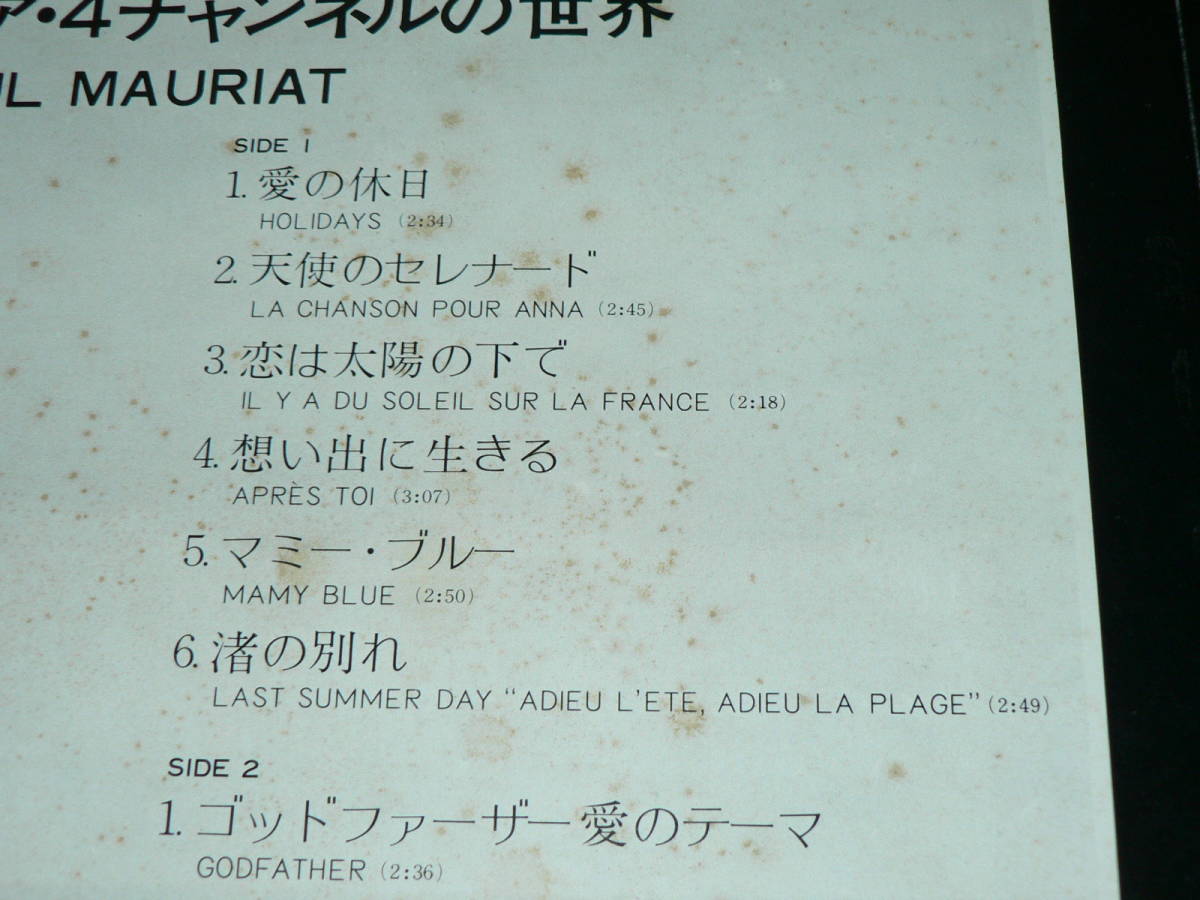 ア・4チャンネルの世界
UL MAURIAT
SIDE 1
1. 愛の休日
HOLIDAYS (2:34)
2. 天使のセレナード
LA CHANSON POUR ANNA (2:45)
3. 恋は太陽の下で
IL Y A DU SOLEIL SUR LA FRANCE (2:18)
4. 想い出に生きる
APRÈS TOI (3:07)
5. マミー・ブルー
MAMY BLUE (2:50)
6. 渚の別れ
LAST SUMMER DAY “ADIEU L'ETE, ADIEU LA PLAGE” (2:49)
SIDE 2
1. ゴッドファーザー愛のテーマ
GODFATHER (2:36)